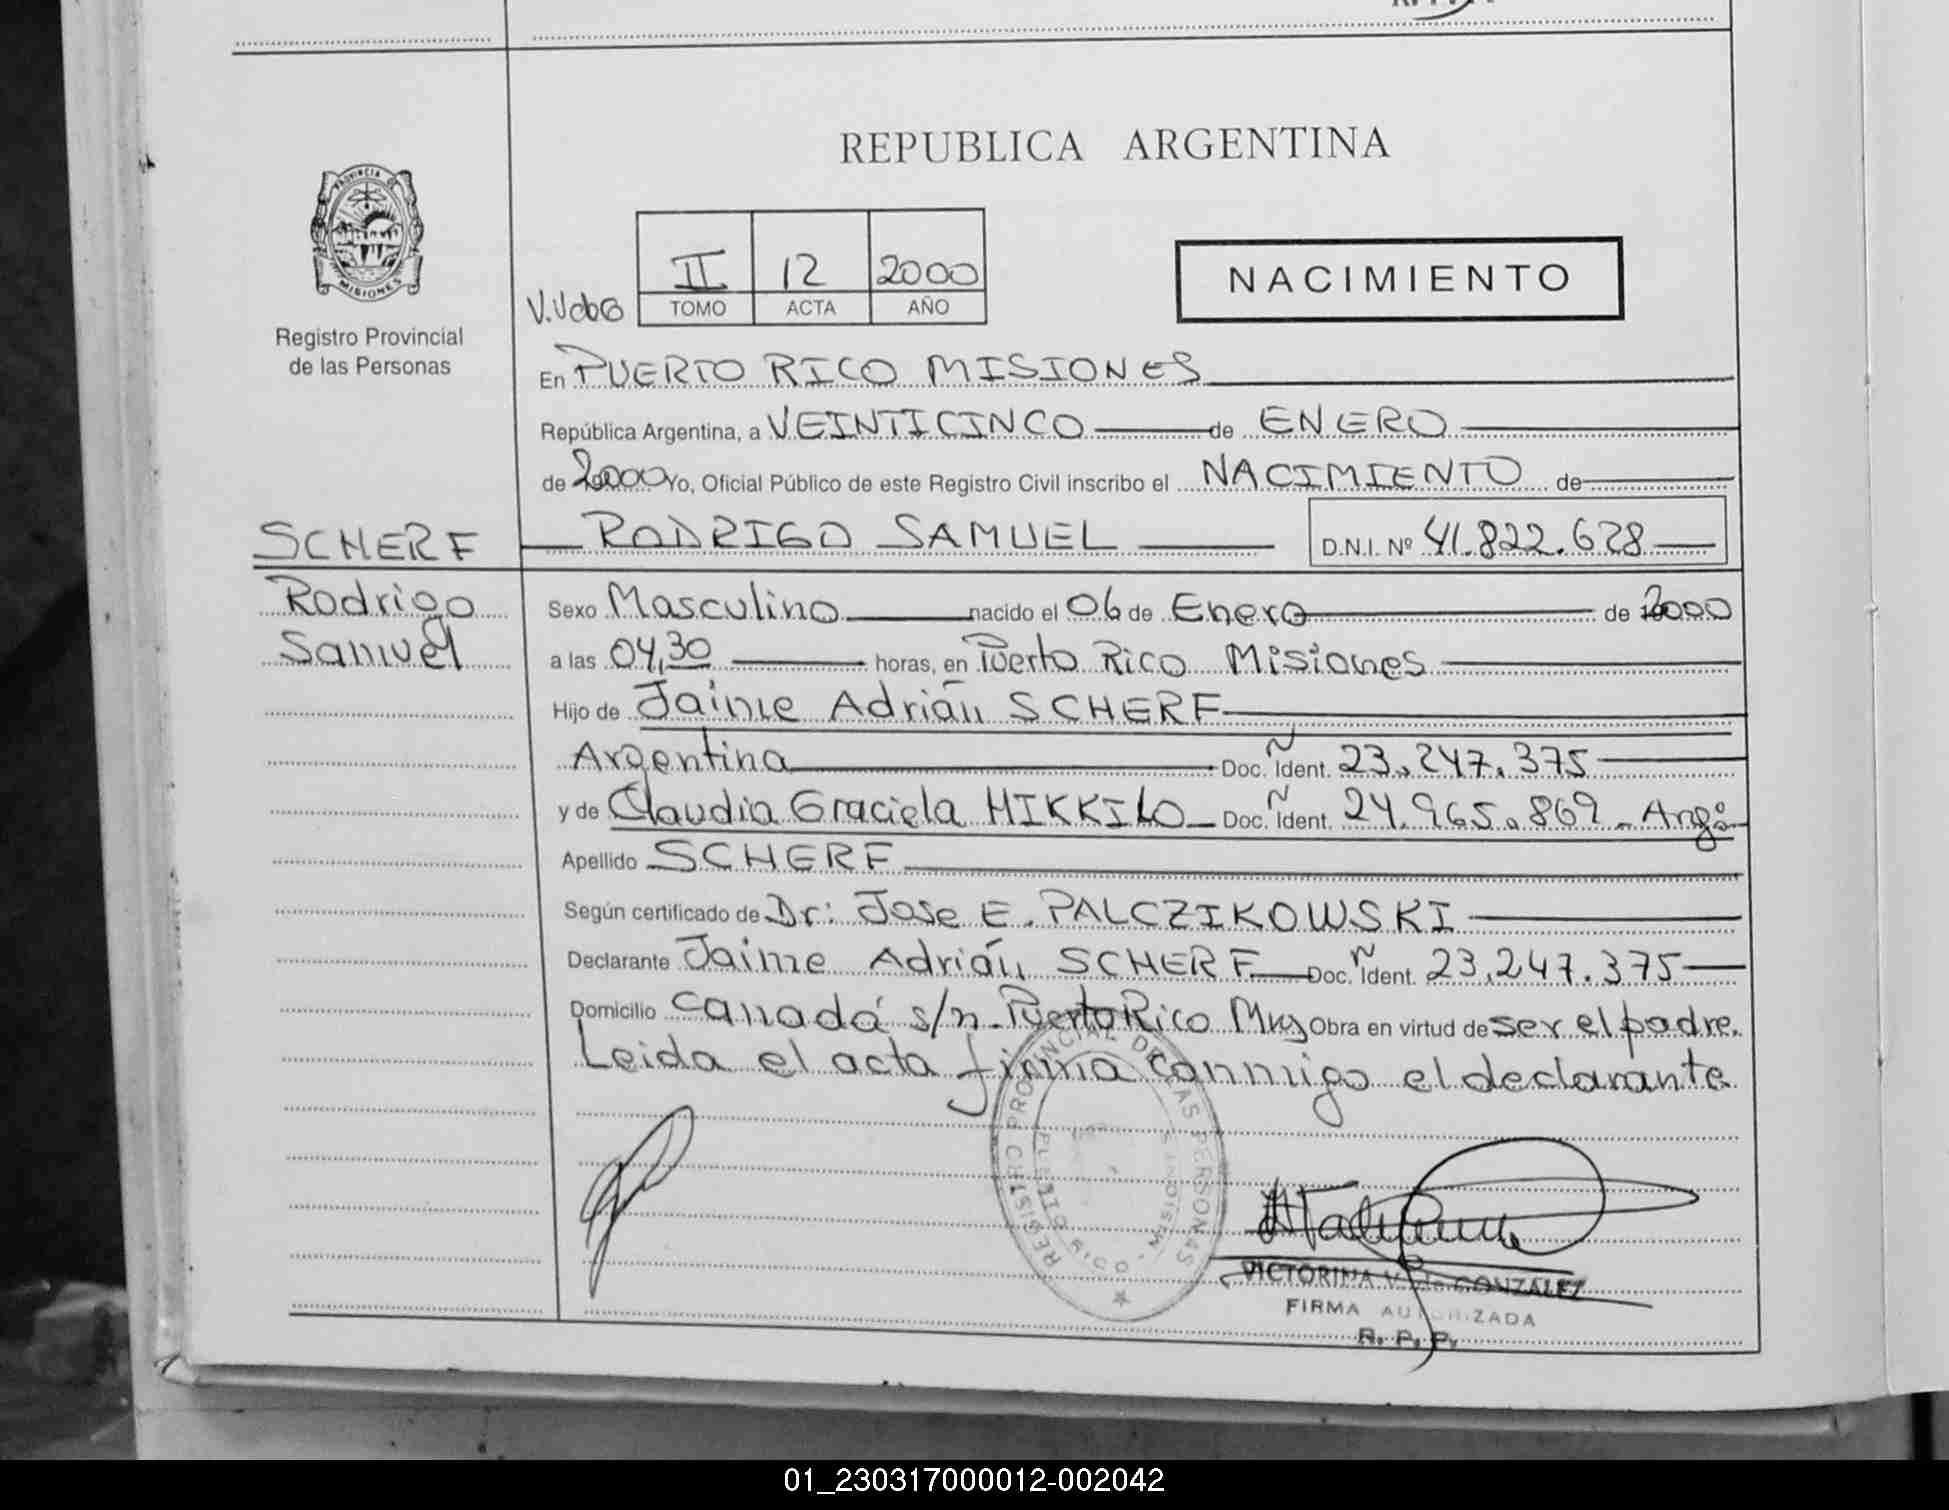 REPUBLICA ARGENTINA
PROVINCIA DE
MISIONES
Registro Provincial
de las Personas
V.Vobo
II 12 2000
TOMO ACTA AÑO
NACIMIENTO
En PUERTO RICO MISIONES
República Argentina, a VEINTICINCO de ENERO
de 2000 Yo, Oficial Público de este Registro Civil inscribo el NACIMIENTO de
SCHERF RODRIGO SAMUEL D.N.I. Nº 41.822.628
Rodrigo
Samuel
Sexo Masculino nacido el 06 de Enero de 2000
a las 04,30 horas, en Puerto Rico Misiones
Hijo de Jaime Adrián SCHERF
Argentina Doc. Ñ Ident. 23.247.375
y de Claudia Graciela HIKKILO Doc. Ñ Ident. 24.965.869 - Arg.
Apellido SCHERF
Según certificado de Dr: Jose E. PALCZIKOWSKI
Declarante Jaime Adrián SCHERF Doc. Ñ Ident. 23.247.375
Domicilio Canadá s/n. Puerto Rico Mns Obra en virtud de ser el padre.
Leida el acta firma conmigo el declarante
REGISTRO PROVINCIAL DE LAS PERSONAS
PUERTO RICO - MISIONES
VICTORINA V. de GONZALEZ
FIRMA AUTORIZADA
R. P. P.
01_230317000012-002042